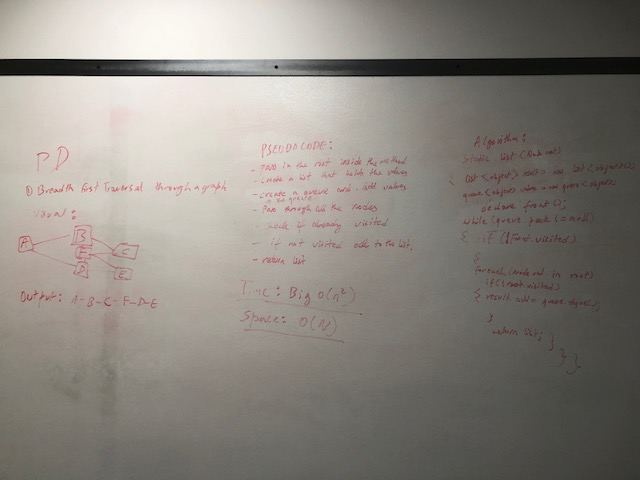 PD
① Breadth first Traversal through a graph
Visual:
A
B
F
D
C
E
Output: A-B-C-F-D-E
PSEUDOCODE:
- Pass in the root inside the method
- create a list that holds the values
- create a queue and add values
to the queue
- Pass through all the nodes
- check if already visited
- if not visited add to the list.
- return list
Time: Big O(n²)
Space: O(N)
Algorithm:
static list (Node root)
{ List <object> result = new List <object>();
queue <object> = new queue <object>
declare front ();
while (queue peek != null)
{ if (!front.visited)
{
foreach (node in root)
if (!root.visited)
{ result.add
}
return list; }
} }